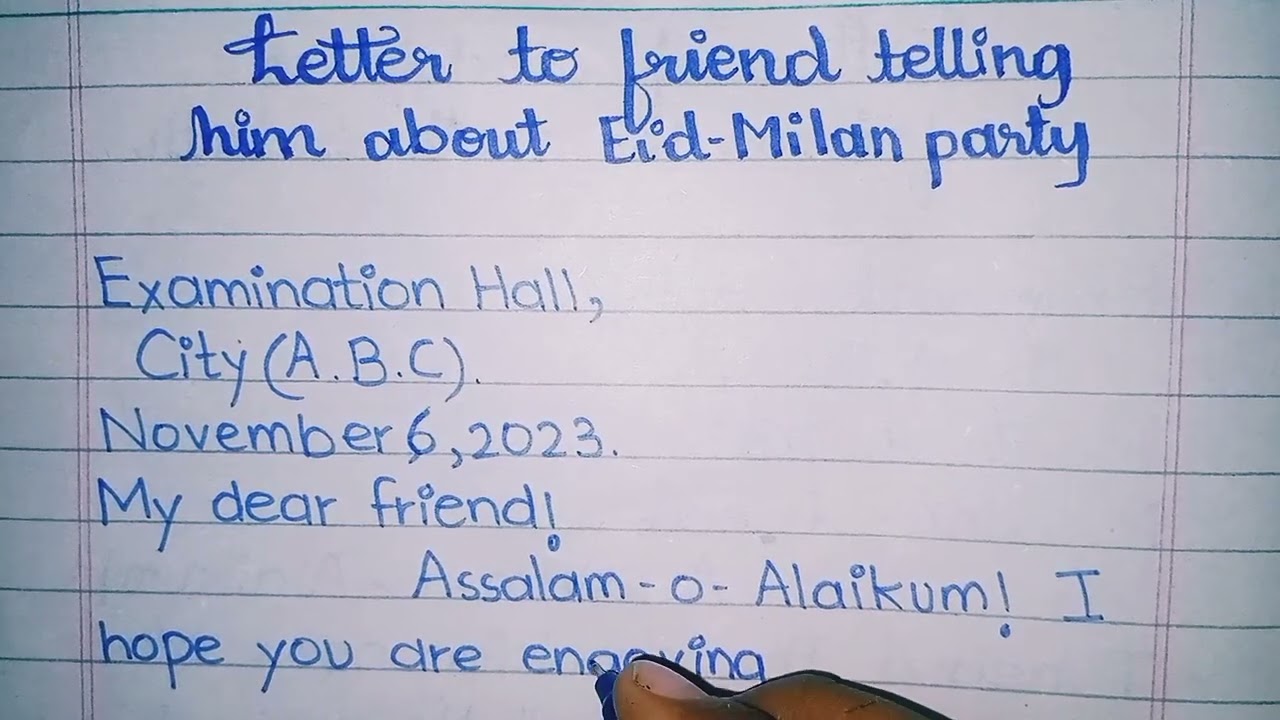 Letter to friend telling
him about Eid-Milan party
Examination Hall,
City (A.B.C).
November 6, 2023.
My dear friend!
Assalam-o-Alaikum! I
hope you are